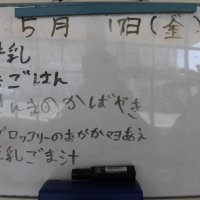 5月 17日(金)
牛乳
ごはん
さんまのかばやき
ブロッコリーのおかかマヨあえ
豆乳ごま汁